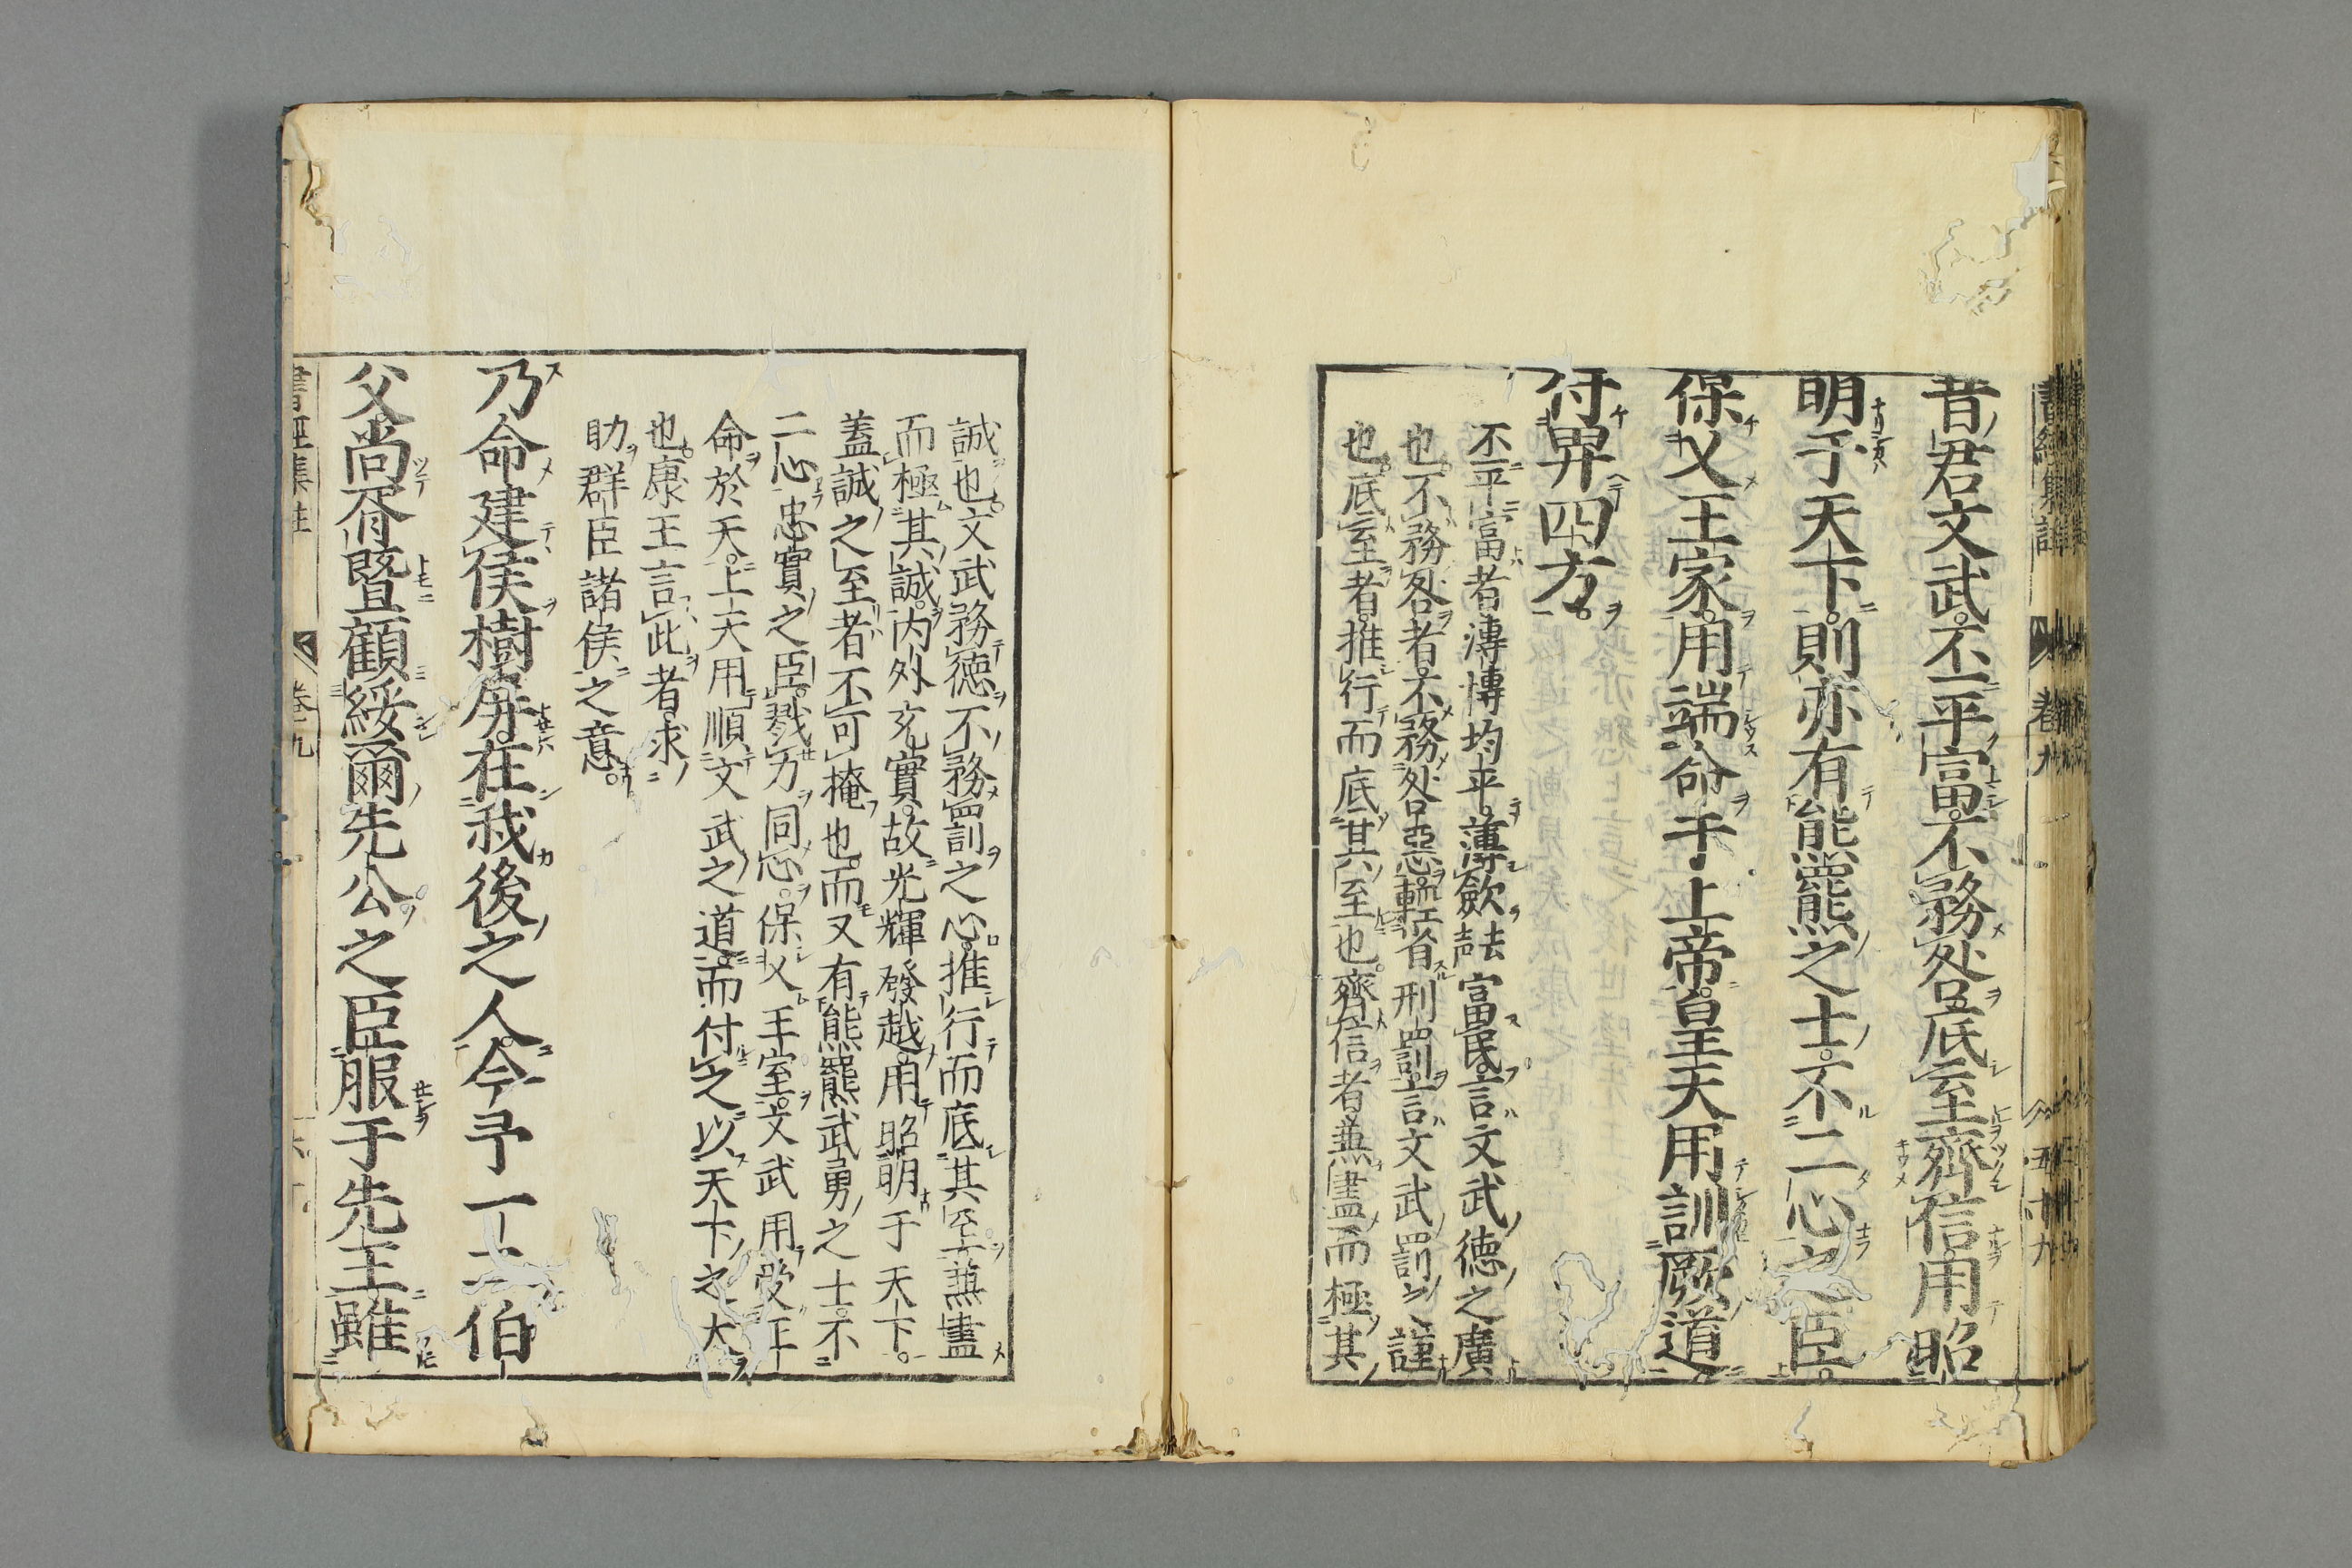 書經集註 卷九 五十九
昔君文武。不平富。不務咎。底至齊信。用昭
明于天下。則亦有熊羆之士。不二心之臣。
保乂王家。用端命于上帝。皇天用訓厥道
付畀四方。
不平富者溥博均平。薄歛富民。言文武德之廣
也。不務咎者。不務咎惡。輕省刑罰。言文武罰之謹
也。底至者。推行而底其至也。齊信者兼盡而極其
誠也。文武務德不務罰之心。推行而底其至。兼盡
而極其誠。内外充實。故光輝發越。用昭明于天下。
蓋誠之至者不可掩也。而又有熊羆武勇之士。不
二心忠實之臣。戮力同心。保乂王室。文武用受正
命於天。上天用順文武之道。而付之以天下之大
也。康王言此者。求
助群臣諸侯之意。
乃命建侯樹屏。在我後之人。今予一二伯
父。尚胥曁顧綏爾先公之臣服于先王。雖
書經集註 卷九